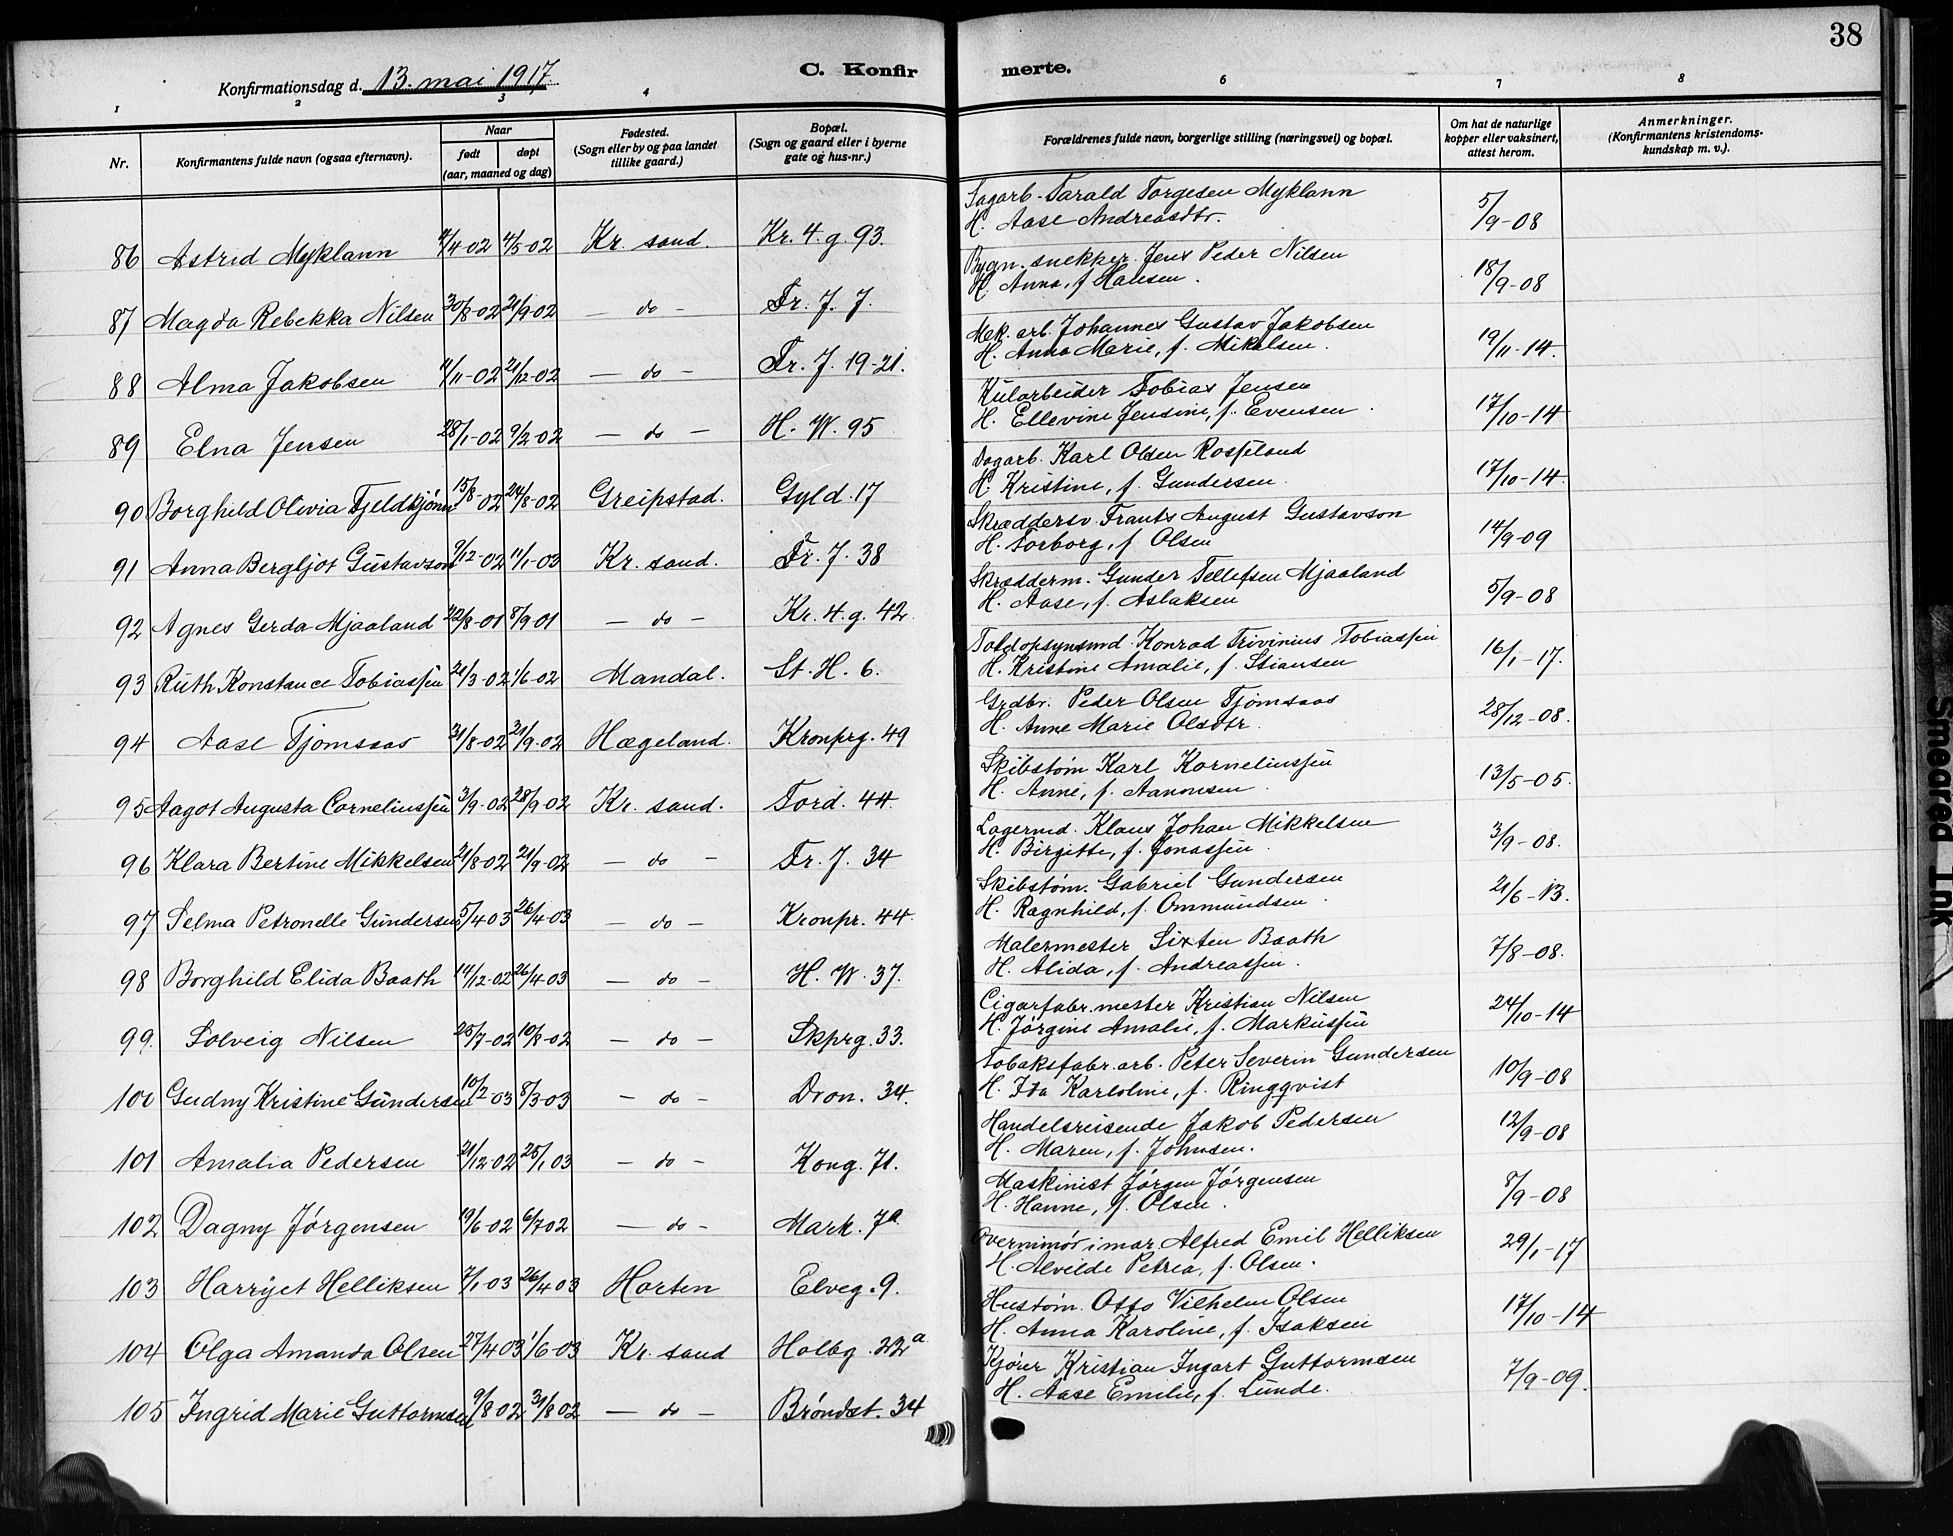 38
Konfirmationsdag d. 13. mai 1917.
C. Konfirmerte.
1 2 3 4 6 7 8
Nr. Konfirmantens fulde navn (ogsaa efternavn). Naar født døpt (aar, maaned og dag) Fødested. (Sogn eller by og paa landet tillike gaard.) Bopæl. (Sogn og gaard eller i byerne gate og hus-nr.) Forældrenes fulde navn, borgerlige stilling (næringsvei) og bopæl. Om hat de naturlige kopper eller vaksinert, attest herom. Anmerkninger. (Konfirmantens kristendomskundskap m. v.).
86 Astrid Myklann 4/4-02 4/5-02 Kr. sand. Kr. 4. g. 93. Sagarb. Tarald Torgesen Myklann 5/9-08
H. Aase Andreasdtr.
87 Magda Rebekka Nilsen 30/8-02 21/9-02 — do — Fr. J. 7. Bygn. snekker Jens Peder Nilsen 18/9-08
H. Anna, f. Hansen.
88 Alma Jakobsen 11/11-02 21/12-02 — do — Fr. J. 19-21. Mek. arb. Johannes Gustav Jakobsen 19/11-14.
H. Anna Marie, f. Mikalsen.
89 Elna Jensen 28/1-02 9/2-02 — do — H. W. 95 Kularbeider Tobias Jensen 17/10-14
H. Ellevine Jensine, f. Evensen.
90 Borghild Olivia Fjeldkjønn 15/8-02 24/8-02 Greipstad. Gyld. 17 Dagarb. Karl Olsen Rosseland 17/10-14
H. Kristine, f. Gundersen.
91 Anna Bergljot Gustavson 9/12-02 11/1-03 Kr. sand. Fr. J. 38 Skræddersv. Frants August Gustavson 14/9-09
H. Torborg, f. Olsen
92 Agnes Gerda Mjaaland 22/8-01 8/9-01 — do — Kr. 4. g. 42. Skrædderm. Gunder Tellefsen Mjaaland 5/9-08
H. Aase, f. Aslaksen
93 Ruth Konstance Tobiassen 21/3-02 1/6-02 Mandal. St. H. 6. Toldopsynsmd. Konrad Trivinius Tobiassen 16/1-17.
H. Kristine Amalie, f. Stiansen
94 Aase Tjomsaas 31/8-02 21/9-02 Hægeland. Kronprg. 49 Grdbr. Peder Olsen Tjomsaas 28/12-08.
H. Anne Marie Olsdtr.
95 Aagot Augusta Corneliussen 3/9-02 28/9-02 Kr. sand. Tord. 44 Skibstøm Karl Korneliussen 13/5-05.
H. Anne, f. Aanonsen.
96 Klara Bertine Mikkelsen 21/8-02 21/9-02 — do — Fr. J. 34 Lagermd. Klaus Johan Mikkelsen 3/9-08.
H. Birgitte, f. Jonassen.
97 Selma Petronelle Gundersen 5/4 03 26/4-03 — do — Kronpr. 44. Skibstøm. Gabriel Gundersen 21/6-13.
H. Ragnhild, f. Ommundsen.
98 Borghild Elida Baath 14/12-02 26/4-03 — do — H. W. 37. Malermester Sixten Baath 7/8-08.
H. Alida, f. Andreassen.
99. Solveig Nilsen 25/7-02 10/8-02 — do — Skprg. 33. Cigarfabr. mester Kristian Nilsen 24/10-14
H. Jørgine Amalie, f. Markussen
100 Gudny Kristine Gundersen 10/2-03 8/3-03 — do — Dron. 34. Tobaksfabr. arb. Peter Severin Gundersen 10/9-08
H. Ida Karloline, f. Ringqvist
101 Amalia Pedersen 21/12-02 25/1 03 — do — Kong. 71. Handelsreisende Jakob Pedersen 12/9-08
H. Maren, f. Johnsen.
102 Dagny Jørgensen 19/6-02 6/7 02 — do — Mark. 7a Maskinist Jørgen Jørgensen 8/9-08
H. Hanne, f. Olsen.
103 Harrijet Helliksen 7/1-03 26/4 03 Horten Elveg. 9. Overminør i mar. Alfred Emil Helliksen 29/1-17
H. Alvilde Petrea, f. Olsen.
104 Olga Amanda Olsen 27/4 03 1/6-03 Kr. sand Holbg. 22a Hustøm. Otto Vilhelm Olsen 17/10-14
H. Anna Karoline, f. Isaksen
105 Ingrid Marie Guttormsen 9/8 02 31/8 02 — do — Brøndst. 34 Kjører Kristian Ingart Guttormsen 7/9-09.
H. Aase Emilie, f. Lunde.
Smeared Ink